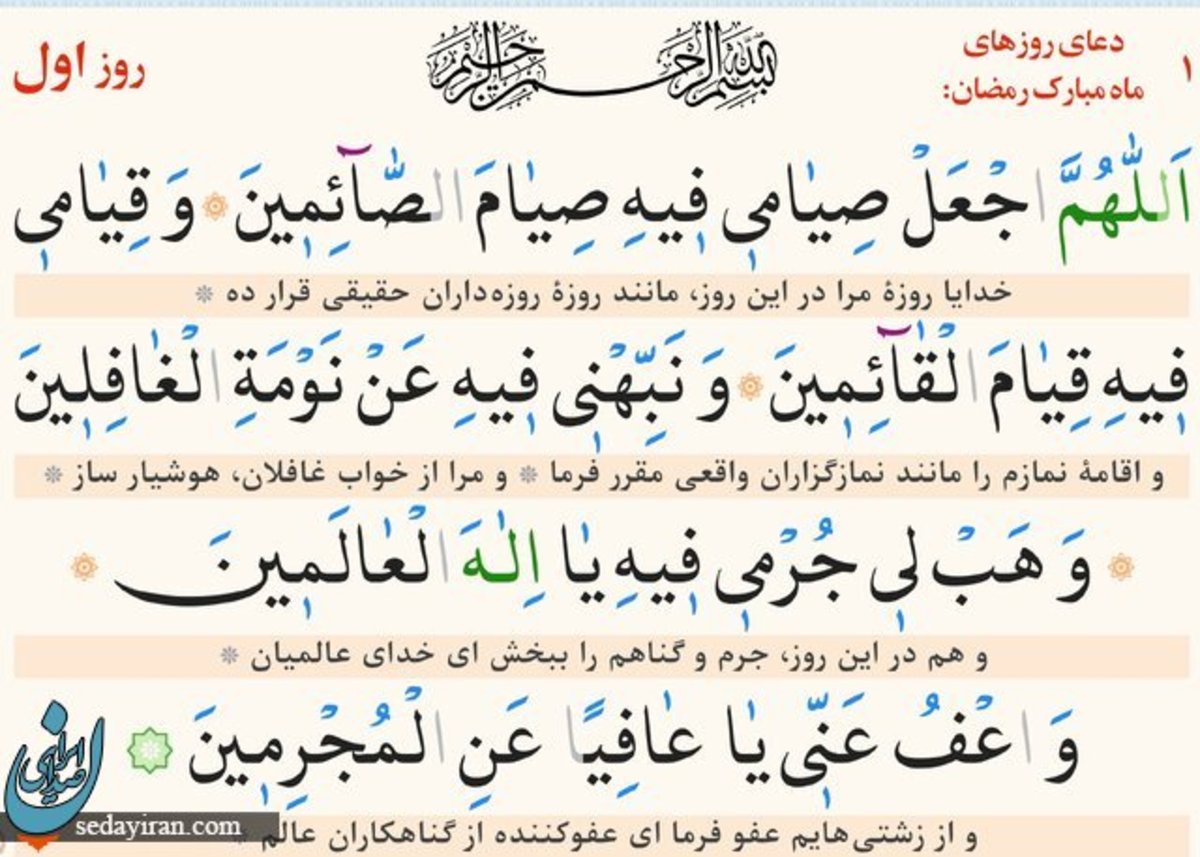 ۱ دعای روزهای
ماه مبارک رمضان:
بسم الله الرحمن الرحیم
روز اول
اَللّٰهُمَّ اجْعَلْ صِيٰامي فيهِ صِيٰامَ الصّٰآئِمينَ وَ قِيٰامي
خدایا روزهٔ مرا در این روز، مانند روزهٔ روزه‌داران حقیقی قرار ده
فيهِ قِيٰامَ الْقٰآئِمينَ وَ نَبِّهْني فيهِ عَنْ نَوْمَةِ الْغٰافِلينَ
و اقامهٔ نمازم را مانند نمازگزاران واقعی مقرر فرما * و مرا از خواب غافلان، هوشیار ساز
وَ هَبْ لي جُرْمي فيهِ يٰا اِلٰهَ الْعٰالَمينَ
و هم در این روز، جرم و گناهم را ببخش ای خدای عالمیان
وَ اعْفُ عَنّي يٰا عٰافِيًا عَنِ الْمُجْرِمينَ
و از زشتی‌هایم عفو فرما ای عفوکننده از گناهکاران عالم
صدای ایران
sedayiran.com